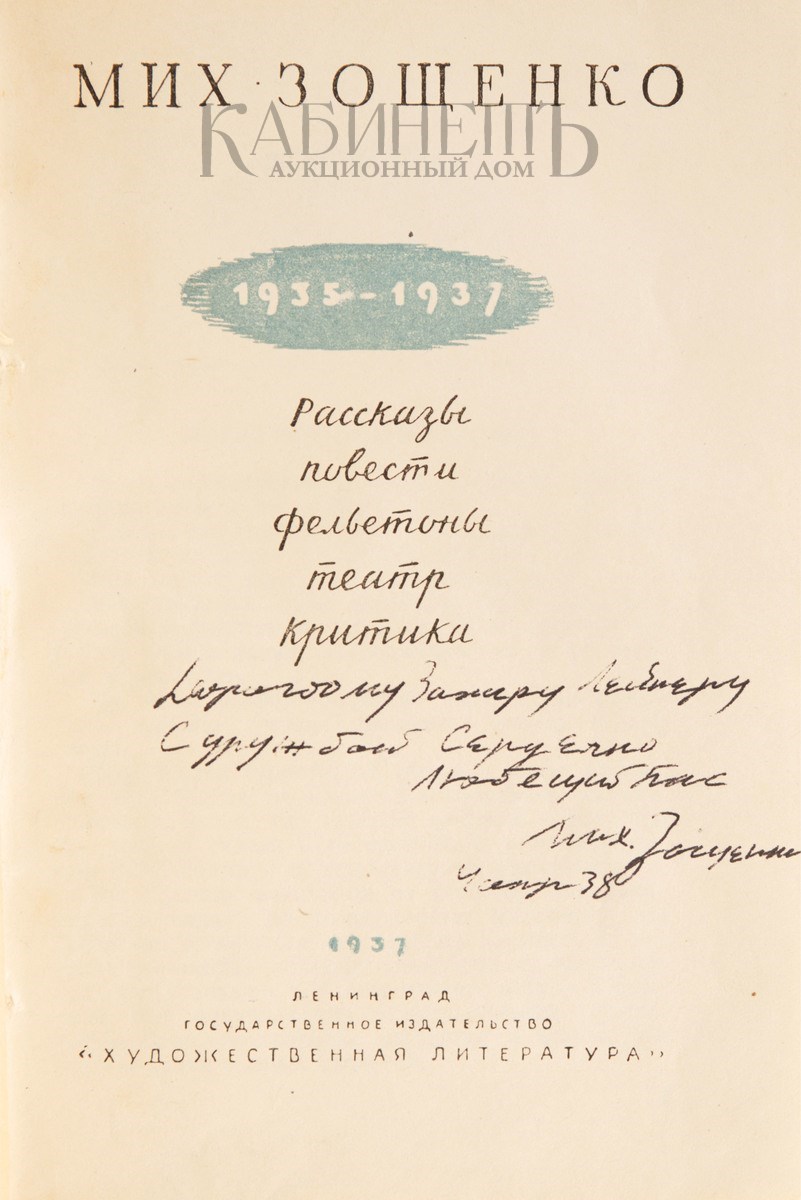 МИХ. ЗОЩЕНКО
КАБИНЕТЪ
АУКЦИОННЫЙ ДОМ
1935-1937
Рассказы
повести
фельетоны
театр
критика
Дорогому Захару Лейкеру
С дружбой Сердечно
Любящий Вас
Мих. Зощенко
апр 38
1937
ЛЕНИНГРАД
ГОСУДАРСТВЕННОЕ ИЗДАТЕЛЬСТВО
«ХУДОЖЕСТВЕННАЯ ЛИТЕРАТУРА»